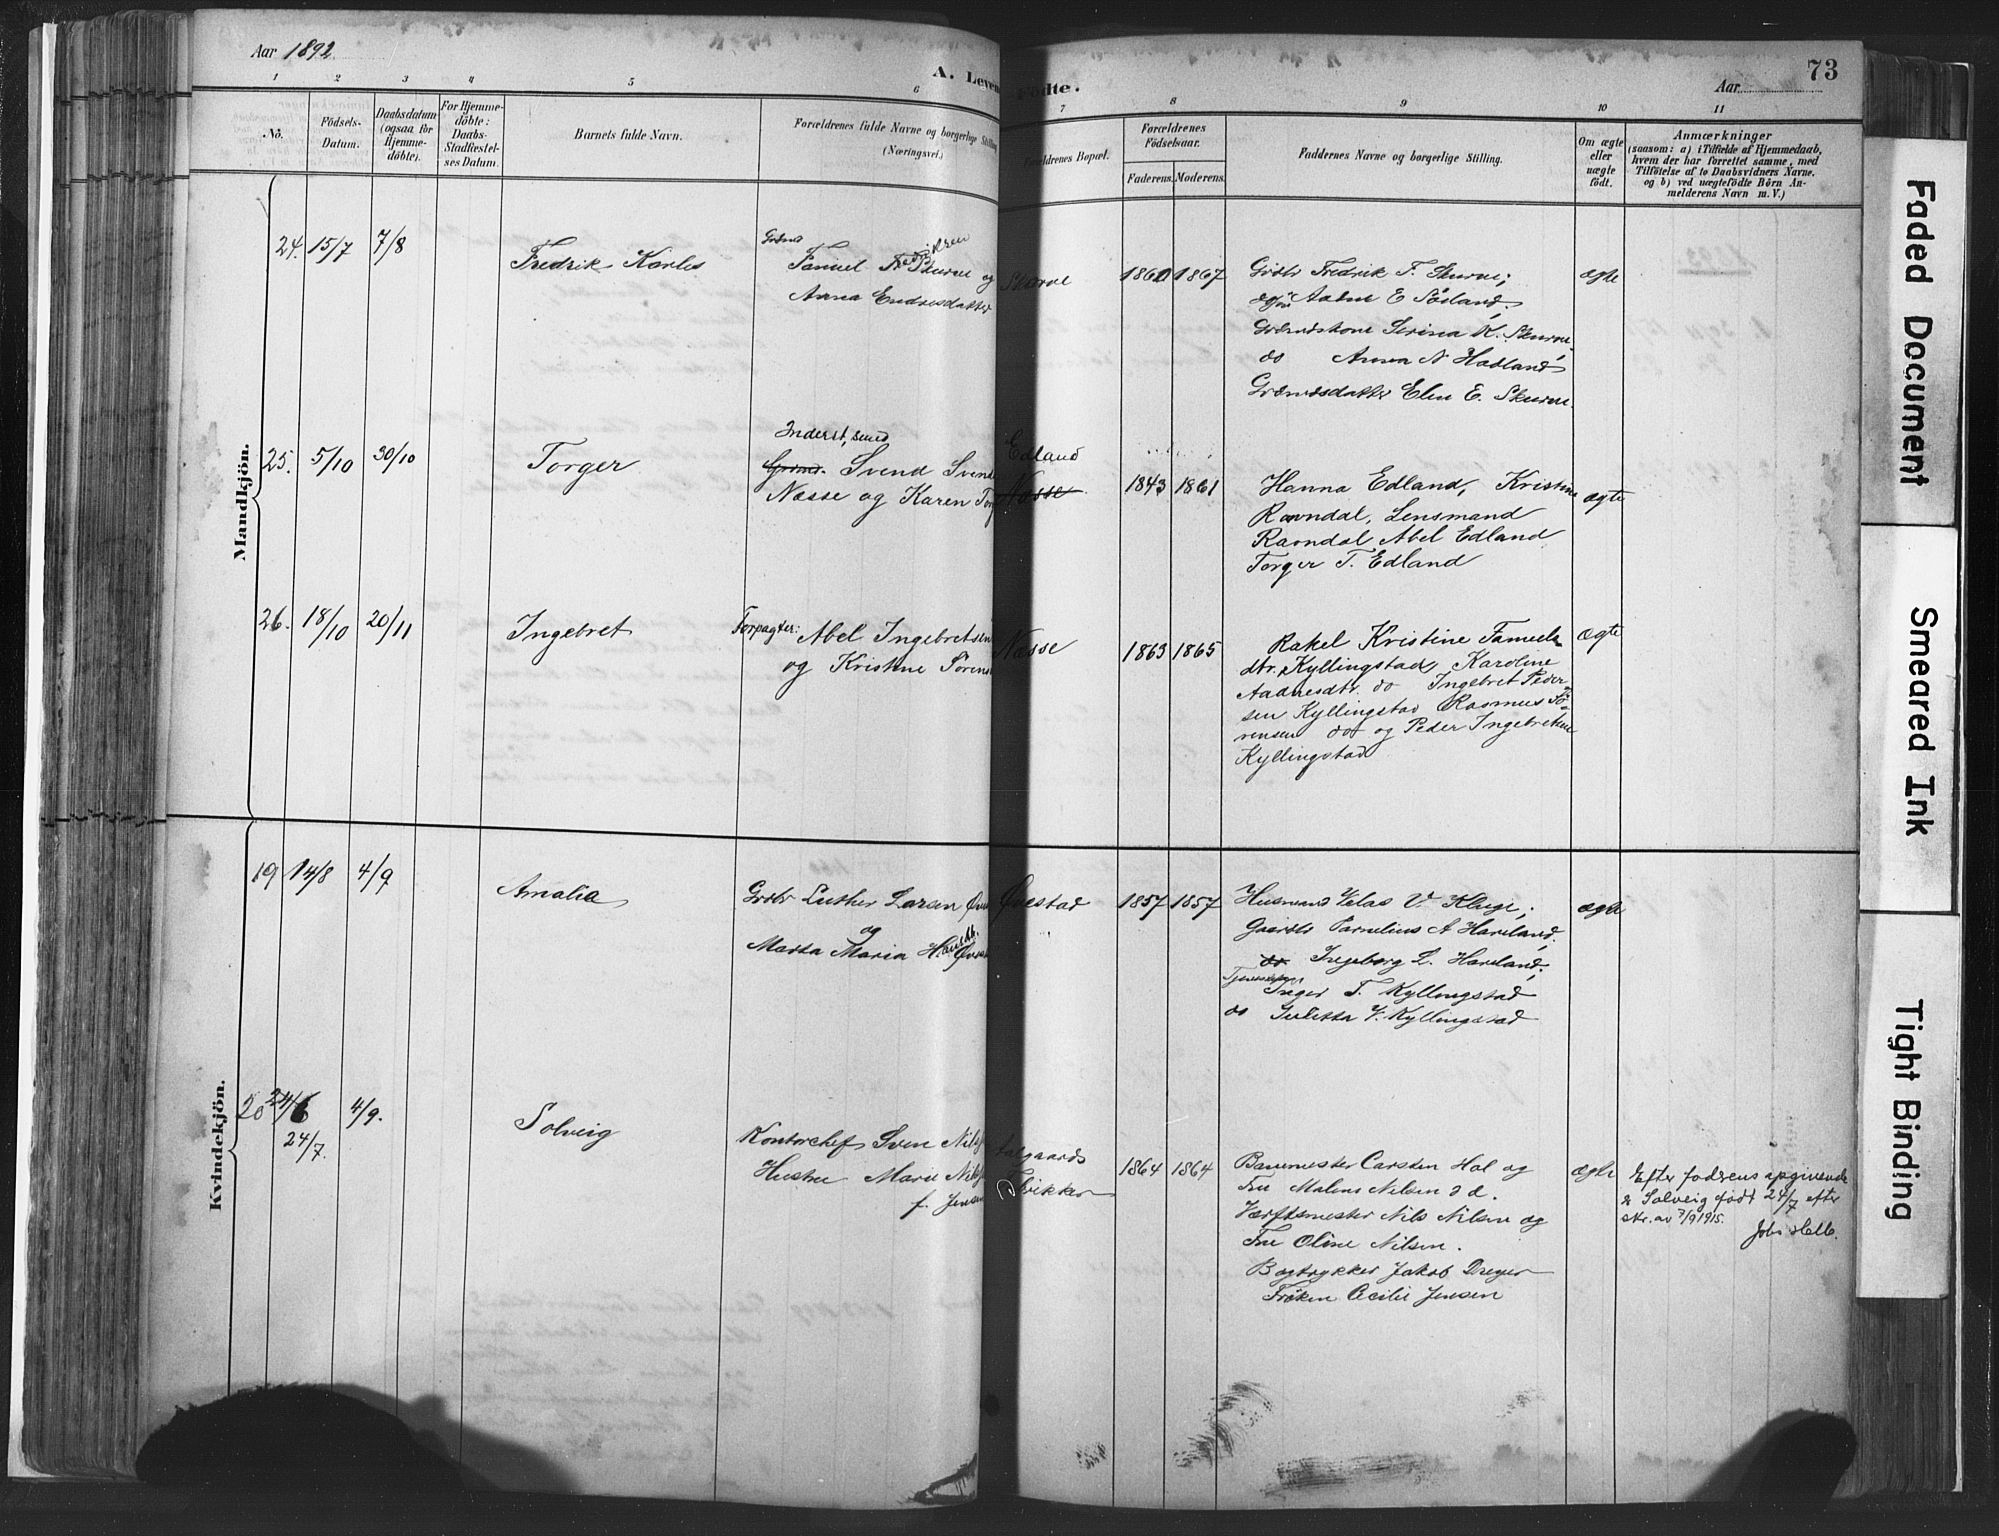 Aar 1892
A. Levende Fødte.
Aar
73
1 2 3 4 5 6 7 8 9 10 11
No.
Fødsels-
Datum.
Daabsdatum
(ogsaa for
Hjemme-
døbte).
For Hjemme-
døbte:
Daabs-
Stadfæstel-
ses Datum.
Barnets fulde Navn.
Forældrenes fulde Navne og borgerlige Stilling
(Næringsvei.)
Forældrenes Bopæl.
Forældrenes
Fødselsaar.
Faderens. Moderens.
Faddernes Navne og borgerlige Stilling.
Om ægte
eller
uægte
født.
Anmærkninger
(saasom: a) i Tilfælde af Hjemmedaab,
hvem der har forrettet samme, med
Tilføielse af to Daabsvidners Navne,
og b) ved uægtefødte Børn An-
melderens Navn m. V.)
Mandkjön.
24. 15/7 7/8
Fredrik Karles
Grdmd
Tamuel Fredriksen Skurve og
Anna Endresdatter
Skurve
1860 1867
Grdbr Fredrik T. Skurve,
Aadne E Søiland,
Grdmdskone Serina K. Skurve
do Anna N Hadland
Grdmdsdatter Elen E. Skurve.
ægte
25. 5/10 30/10
Torger
Inderst, smed
Grdmd. Svend Svends
Næsse og Karen Torg
Edland
Næsse
1843 1861
Hanna Edland, Kristine
Ravndal, Lensmand
Ravndal Abel Edland
Torger T. Edland
ægte
26. 18/10 20/11
Ingebret
Forpagter: Abel Ingebretsen
og Kristine Sørens
Næsse
1863 1865
Rakel Kristine Tamuels
dtr. Kyllingstad, Karoline
Aadnesdtr. do Ingebret Peder
sen Kyllingstad Rasmus Sø-
rensen do og Peder Ingebretsen
Kyllingstad
ægte
Kvindekjön.
19 14/8 4/9
Amalia
Grdbr Luther Larsen
og
Marta Maria
Øvestad
1857 1857
Husmand Velas V. Kluge,
Gaardbr Tarnelius A Haveland,
do Ingeborg L. Haveland,
Tjenestepige
Inger T. Kyllingstad
do Juletta V. Kyllingstad
ægte
20 24/6 4/9.
24/7.
Solveig
Kontorchef Sven Nils
Hustru Marie Nils
f. Jensen
Aalgaards
Fabrikker
1864 1864
Banemester Carsten Hal og
Fru Malene Nilsen s d.
Værftsmester Nils Nilsen og
Fru Oline Nilsen.
Bogtrykker Jakob Dreyer
Frøken Cecilie Jensen
ægte
Efter faderens apgivende
er Solveig født 24/7 efter
skr. av 7/9 1915.
Jobs Helb.
Faded Document
Smeared Ink
Tight Binding